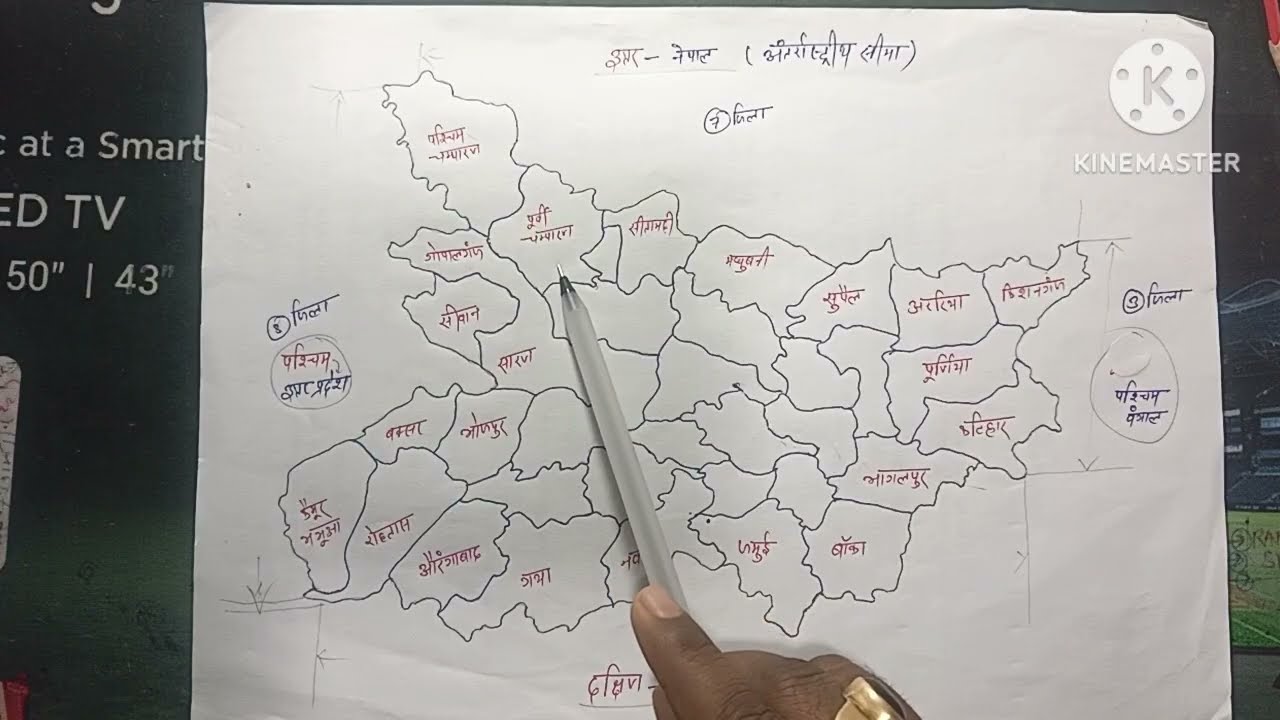 c at a Smart
ED TV
50" | 43"
उत्तर - नेपाल (अंतर्राष्ट्रीय सीमा)
KINEMASTER
7 जिला
पश्चिम
चम्पारण
पूर्वी
चम्पारण
सीतामढ़ी
गोपालगंज
मधुबनी
सुपौल
अररिया
किशनगंज
8 जिला
पश्चिम
उत्तर प्रदेश
सीवान
सारण
पूर्णिया
3 जिला
पश्चिम
बंगाल
बक्सर
भोजपुर
कटिहार
कैमूर
भभुआ
रोहतास
भागलपुर
औरंगाबाद
गया
जमुई
बाँका
दक्षिण -